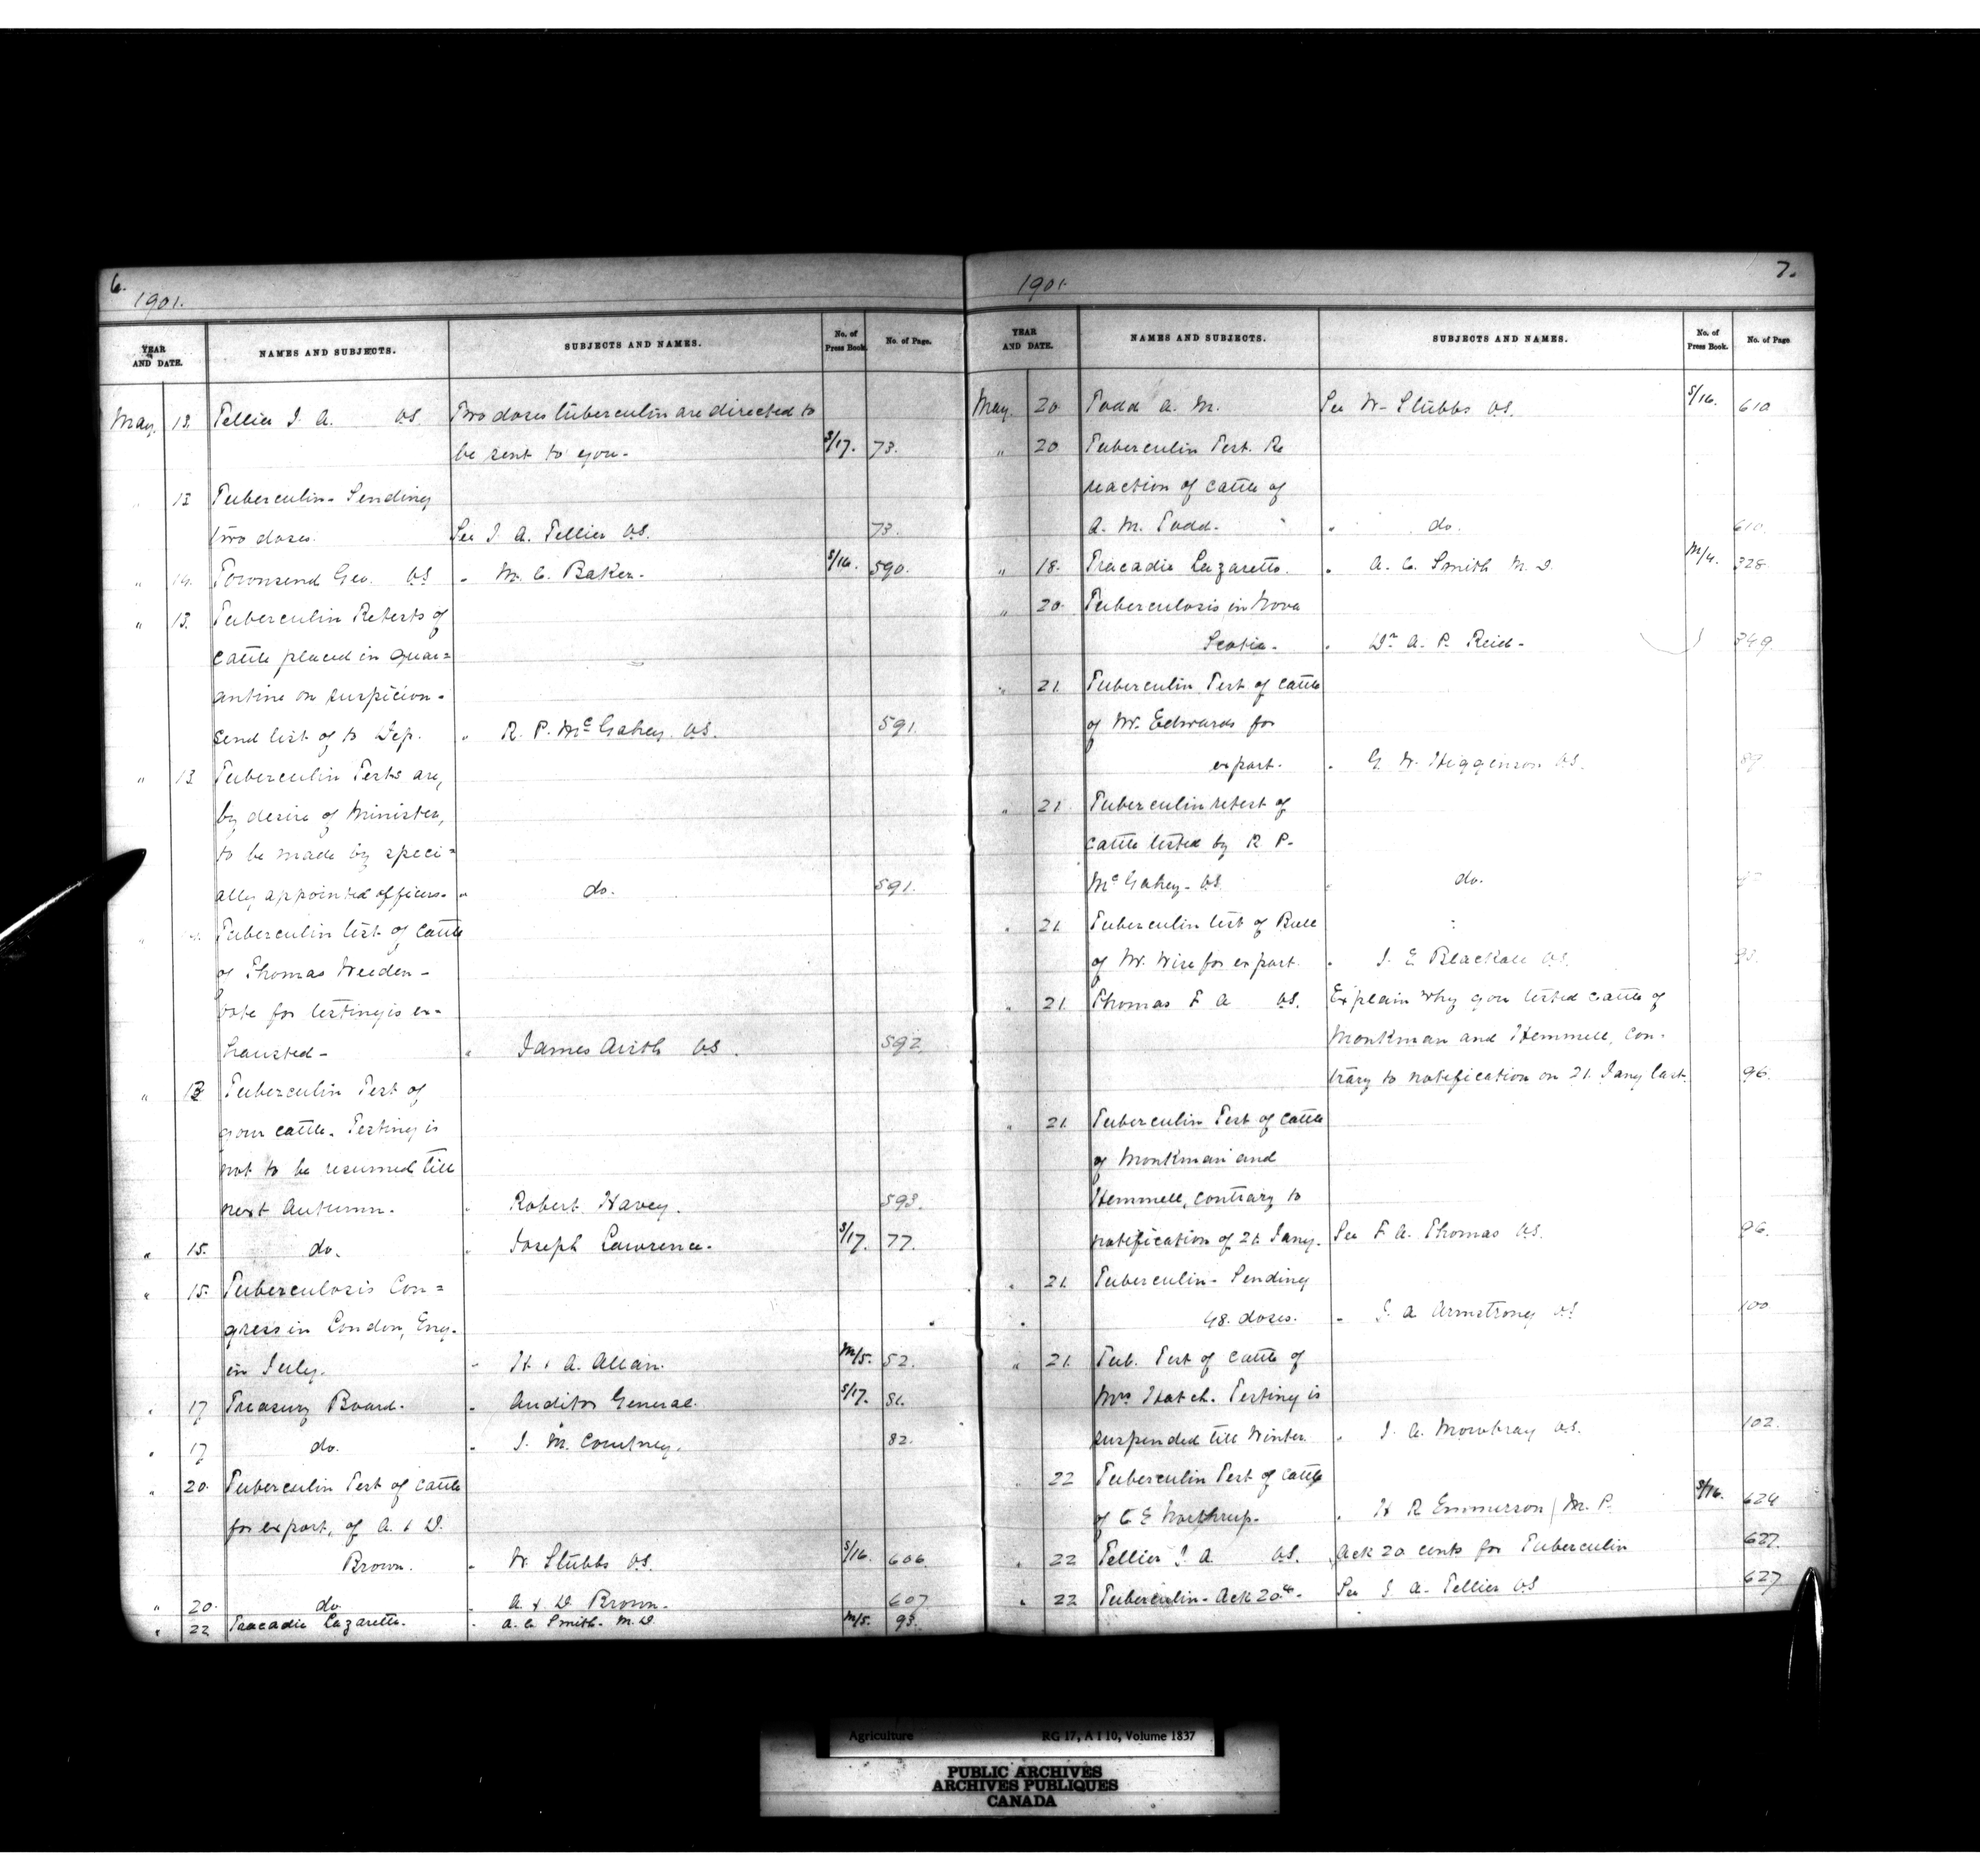 6.
1901.
YEAR AND DATE. NAMES AND SUBJECTS. SUBJECTS AND NAMES. No. of Press Book. No. of Page.
May. 13. Tellier J. A. V.S. Two doses tuberculin are directed to
be sent to you. S/17. 73.
13 Tuberculin - Sending
two doses. See J. A. Tellier V.S. 73.
" 14. Townsend Geo. V.S " M. C. Baker. S/16. 590.
" 13. Tuberculin Retests of
cattle placed in Quar=
antine on suspicion -
send list of to Dep. " R. P. McGahey V.S. 591.
" 13 Tuberculin Tests are,
by desire of Minister,
to be made by speci=
ally appointed officers. " do. 591.
" Tuberculin test of Cattle
of Thomas Weeden -
Vote for testing is ex-
hausted - " James Airth V.S. 592.
" 13 Tuberculin Test of
your cattle. Testing is
not to be resumed till
next Autumn. " Robert Havey. 593.
" 15. do. " Joseph Lawrence. S/17. 77.
" 15. Tuberculosis Con=
gress in London, Eng.
in July. " H. & A. Allan. M/5. 52.
" 17 Treasury Board. " Auditor General. S/17. 81.
" 17 do. " J. M. Courtney. 82.
" 20. Tuberculin Test of cattle
for export, of A. & D.
Brown. " W. Stubbs V.S. S/16. 606.
" 20. do " A. & D. Brown. 607
" 22 Tracadie Lazaretto. " A. C. Smith. M.D. M/5. 93.
7.
1901.
YEAR AND DATE. NAMES AND SUBJECTS. SUBJECTS AND NAMES. No. of Press Book. No. of Page
May. 20 Todd A. M. See W. Stubbs V.S. S/16. 610
" 20 Tuberculin Test. Re
reaction of cattle of
A. M. Todd. " do. 610.
" 18. Tracadie Lazaretto. " A. C. Smith M.D. M/4. 328
" 20. Tuberculosis in Nova
Scotia. " Dr. A. P. Reid. 349
" 21. Tuberculin Test of Cattle
of W. Edwards for
export. " G. W. Higginson V.S. 89
" 21. Tuberculin retest of
cattle tested by R P.
McGahey - V.S. " do.
" 21. Tuberculin test of Bull
of W. Wise for export. " J. E Blackall V.S. 93.
" 21. Thomas F A V.S. Explain why you tested cattle of
Monkman and Hemmell, con-
trary to notification on 21 Jany last. 96.
" 21. Tuberculin Test of Cattle
of Monkman and
Hemmell, contrary to
notification of 21 Jany. See F. A. Thomas V.S. 96.
" 21. Tuberculin - Sending
48. doses. " J. A Armstrong V.S 100
" 21. Tub. Test of cattle of
Mrs Hatch. Testing is
suspended till Winter " J. A. Mowbray V.S. 102.
22 Tuberculin Test of Cattle
of C. E Northrup. " H R Emmerson M. P. S/16. 624
" 22 Tellier J. A V.S. Ack 20 cents for Tuberculin 627.
" 22 Tuberculin - Ack 20cts. See J. A. Tellier V.S 627
Agriculture RG 17, A I 10, Volume 1837
PUBLIC ARCHIVES
ARCHIVES PUBLIQUES
CANADA